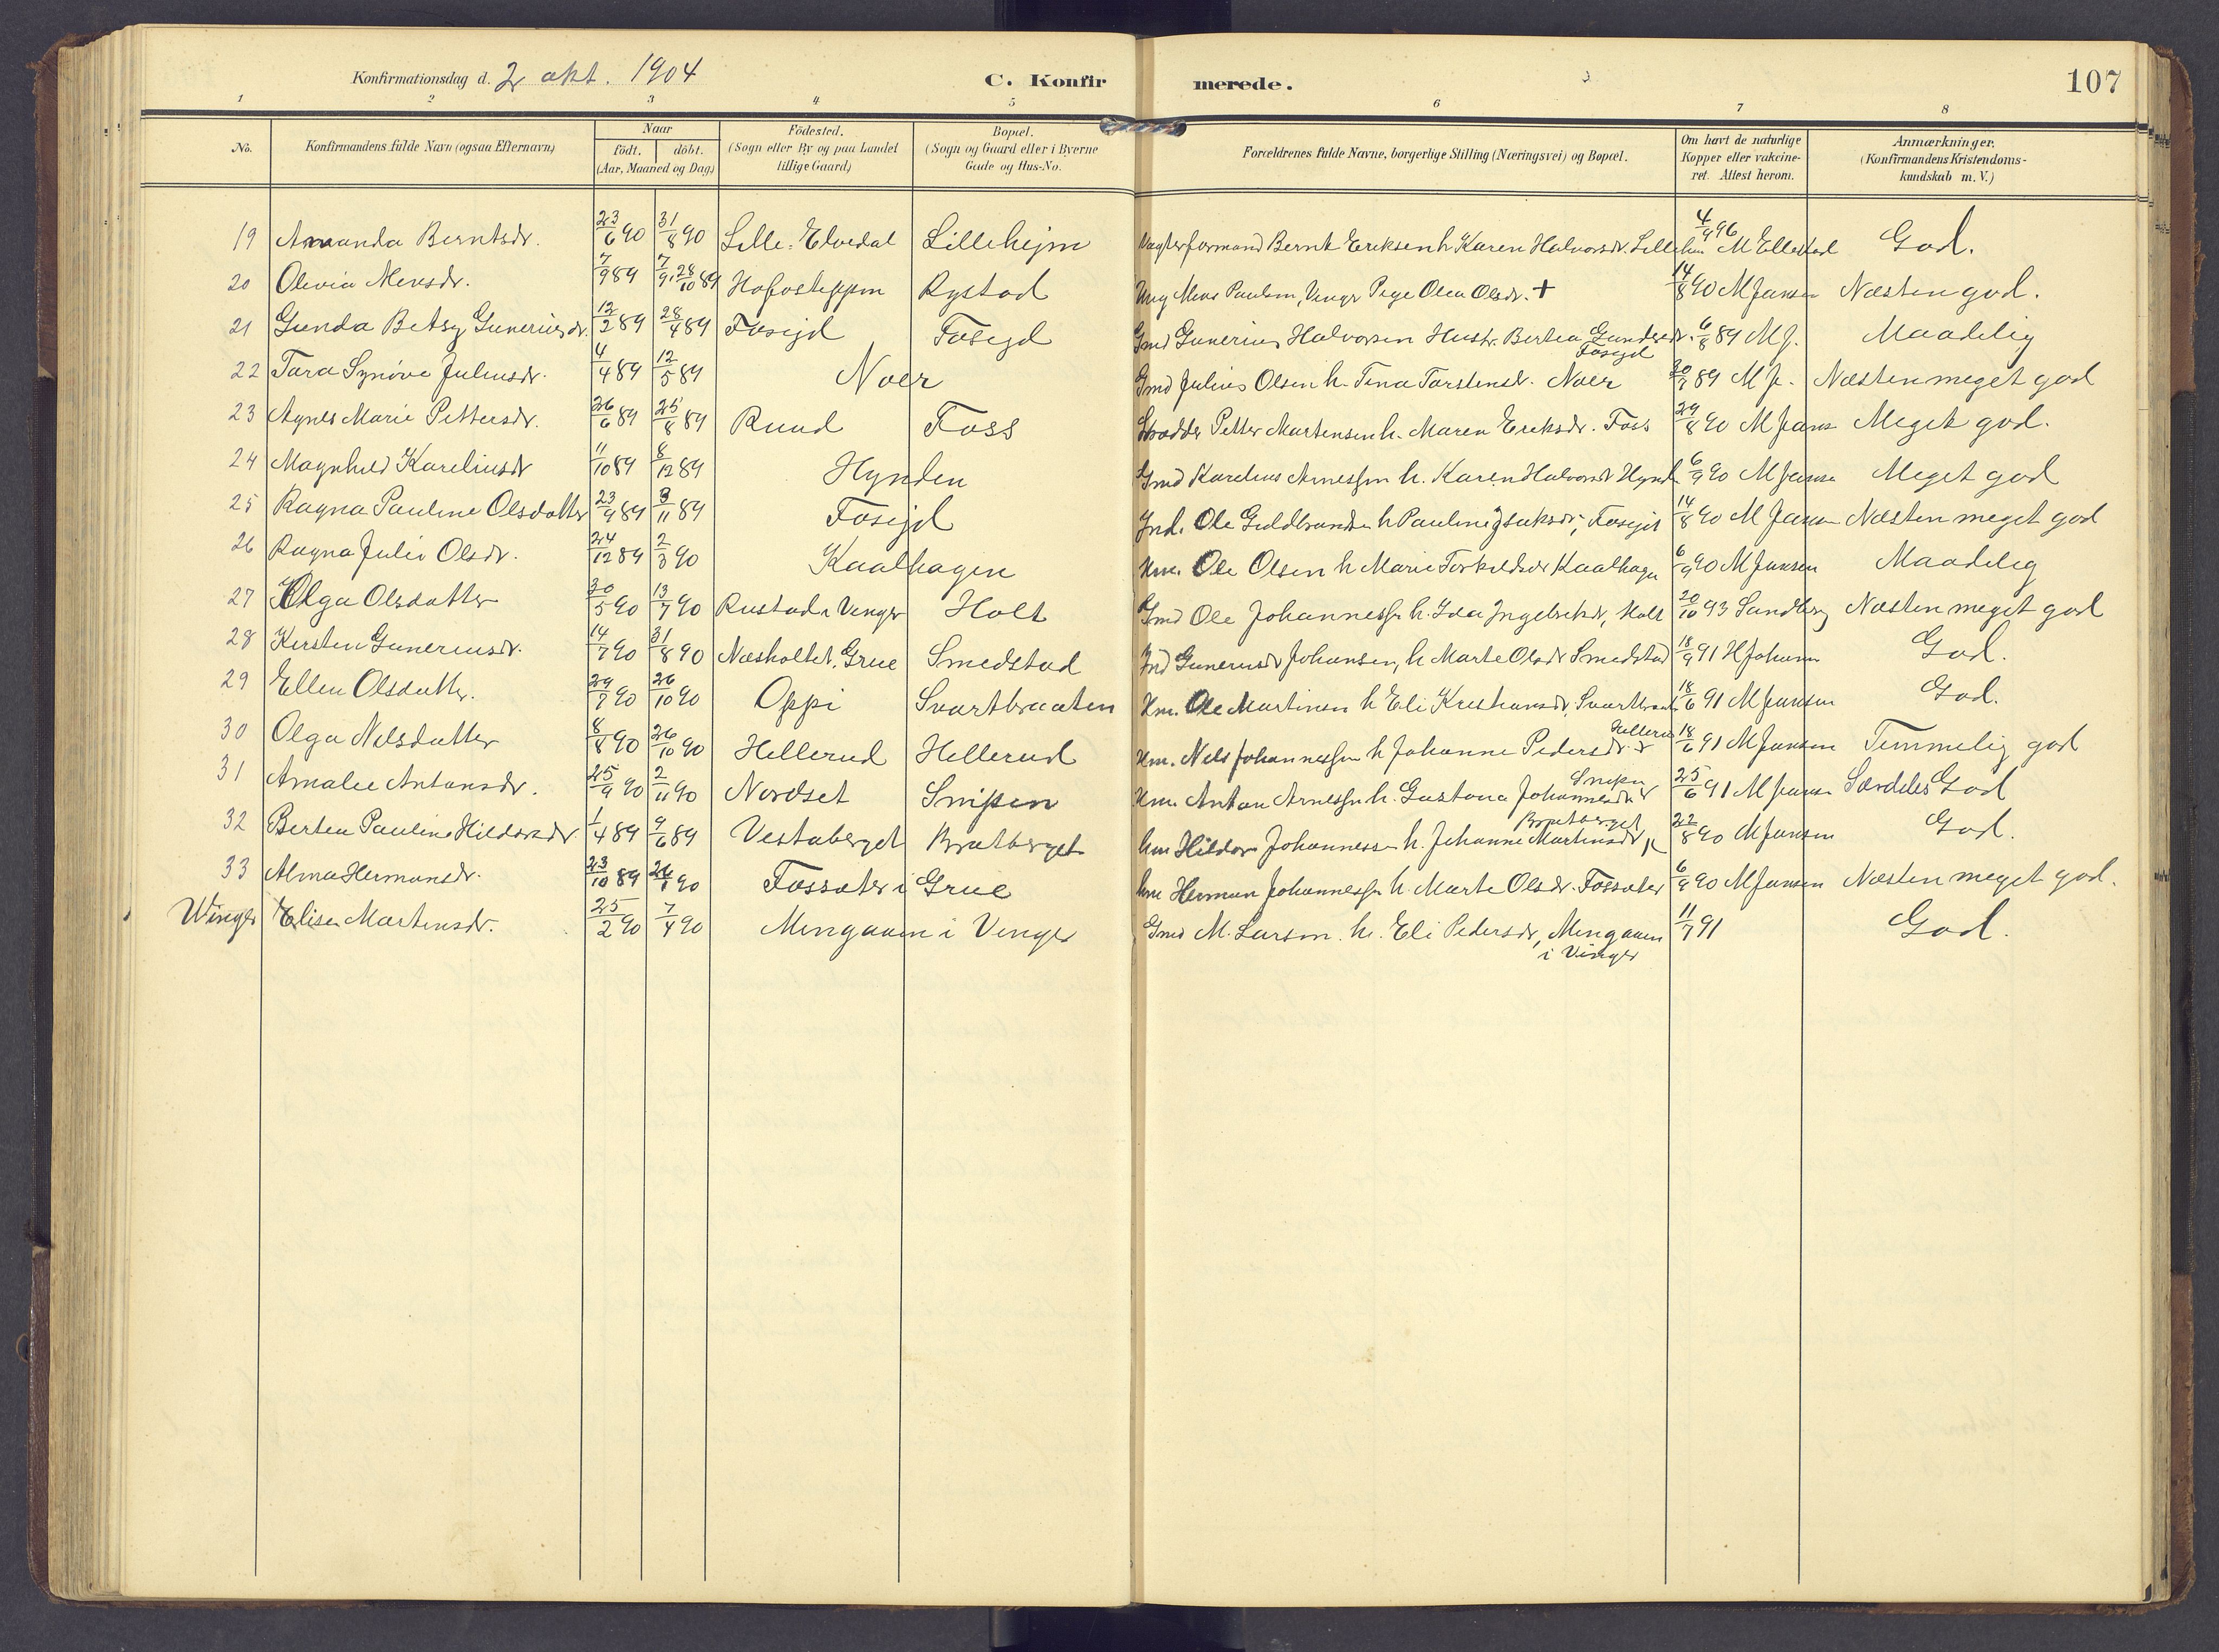 Konfirmationsdag d. 2 okt. 1904 C. Konfirmerede. 107
1 2 3 4 5 6 7 8
No. Konfirmandens fulde Navn (ogsaa Efternavn) Naar födt. döbt. (Aar, Maaned og Dag) Födested. (Sogn eller By og paa Landet tillige Gaard) Bopæl. (Sogn og Gaard eller i Byerne Gade og Hus-No. Forældrenes fulde Navne, borgerlige Stilling (Næringsvei) og Bopæl. Om havt de naturlige Kopper eller vakcineret. Attest herom. Anmærkninger. (Konfirmandens Kristendomskundskab m. V.)
19 Amanda Berntsdr. 23/6 90 31/8 90 Lille-Elvedal Lillehejm Bernt Eriksen h. Karen Halvorsdr. 4/9 96 M Ellestad God.
20 Olivia Mensdr. 7/9 89 28/10 89 Rystad Ung Mens Paulsen, Pige Olea Olsdr. + 14/8 90 M Jansen Næsten god.
21 Gunda Betsy Guneriusdr. 12/2 89 28/4 89 Fosejd Fosejd Gmd Gunerius Halvorsen Hustr. Bertea Gundersdr. Fosejd 6/8 89 M J. Maadelig
22 Tora Synöve Juliusdr. 4/4 89 12/5 89 Noer Gmd Julius Olsen h. Tina Torstensdr. Noer 20/7 89 M J. Næsten meget god
23 Agnes Marie Pettersdr. 26/6 89 25/8 89 Ruud Foss Petter Martensen h. Maren Eriksdr. Foss 29/8 90 M Jans Meget god.
24 Magnhild Kareliusdr 11/10 89 8/12 89 Hynden Gmd Karelius Arnessen h. Karen Halvorsdr Hynd 6/9 90 M Jansen Meget god
25 Ragna Pauline Olsdatter 23/9 89 3/11 89 Fosejd Ind. Ole Guldbrandsen h Pauline Isaksdr, Fosejd 14/8 90 M Jansen Næsten meget god
26 Ragna Julie Olsdr. 24/12 89 2/3 90 Kaalhagen Hm. Ole Olsen h Marie Torkildsdr Kaalhagen 6/9 90 M Jansen Maadelig
27 Olga Olsdatter 30/5 90 13/7 90 Rustad i Vinger Holt Gmd Ole Johannessen h. Ida Ingebretsdr, Holt 20/10 93 Sandberg Næsten meget god
28 Kirsten Guneriusdr. 14/7 90 31/8 90 Næsholtet, Grue Smedstad Ind Johansen, h Marte Olsdr Smedstad 18/9 91 God.
29 Ellen Olsdatter. 29/7 90 26/10 90 Oppi Svartbraaten Hm. Ole Martinsen h Eli Kristiansdr, Svartbraaten 18/6 91 M Jansen God.
30 Olga Nilsdatter 8/8 90 26/10 90 Hellerud Hellerud Hm. Nils Johannessen h Johanne Pedersdr. Hellerud 18/6 91 M Jansen Temmelig god
31 Amalie Antonsdr. 25/9 90 2/11 90 Nordset Snipen Hm Anton Arnessen h. Gustava Johannesdr Snipen 25/6 91 M Jansen Særdeles God
32 Bertea Pauline Hildorsdr 1/4 89 9/6 89 Vestaberget Bratberget hm Hildor Johannessen h. Johanne Martinsdr Bratberget 22/8 90 M Jansen God.
33 Alma Hermansdr. 23/10 89 26/1 90 Fossæter i Grue hm Herman Johannessen h. Marte Olsdr. Fossæter 6/9 90 M Jansen Næsten meget god.
Winger Elise Martensdr. 25/2 90 7/4 90 Mengaaen i Vinger Gmd M. Larsen h. Eli Pedersdr, Mengaaen i Vinger 11/7 91 God.